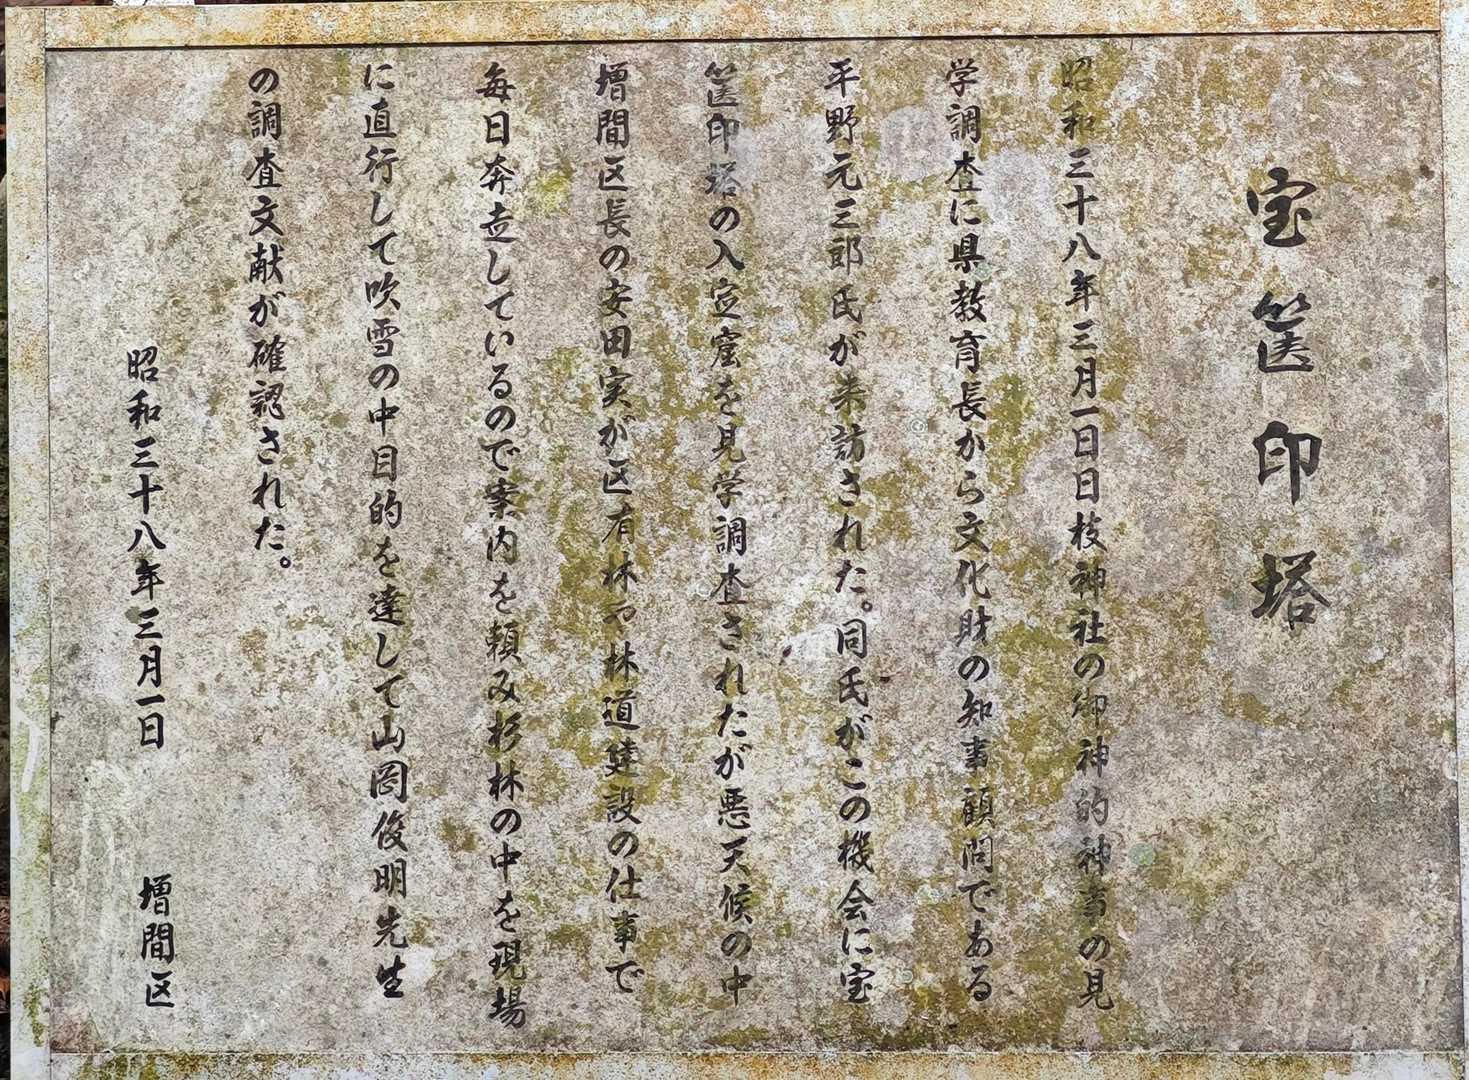 宝篋印塔
昭和三十八年三月一日日枝神社の御神的神事の見
学調査に県教育長から文化財の知事顧問である
平野元三郎氏が来訪された。同氏がこの機会に宝
篋印塔の入定窟を見学調査されたが悪天候の中
増間区長の安田実が区有林や林道建設の仕事で
毎日奔走しているので案内を頼み杉林の中を現場
に直行して吹雪の中目的を達して山岡俊明先生
の調査文献が確認された。
昭和三十八年三月一日 増間区